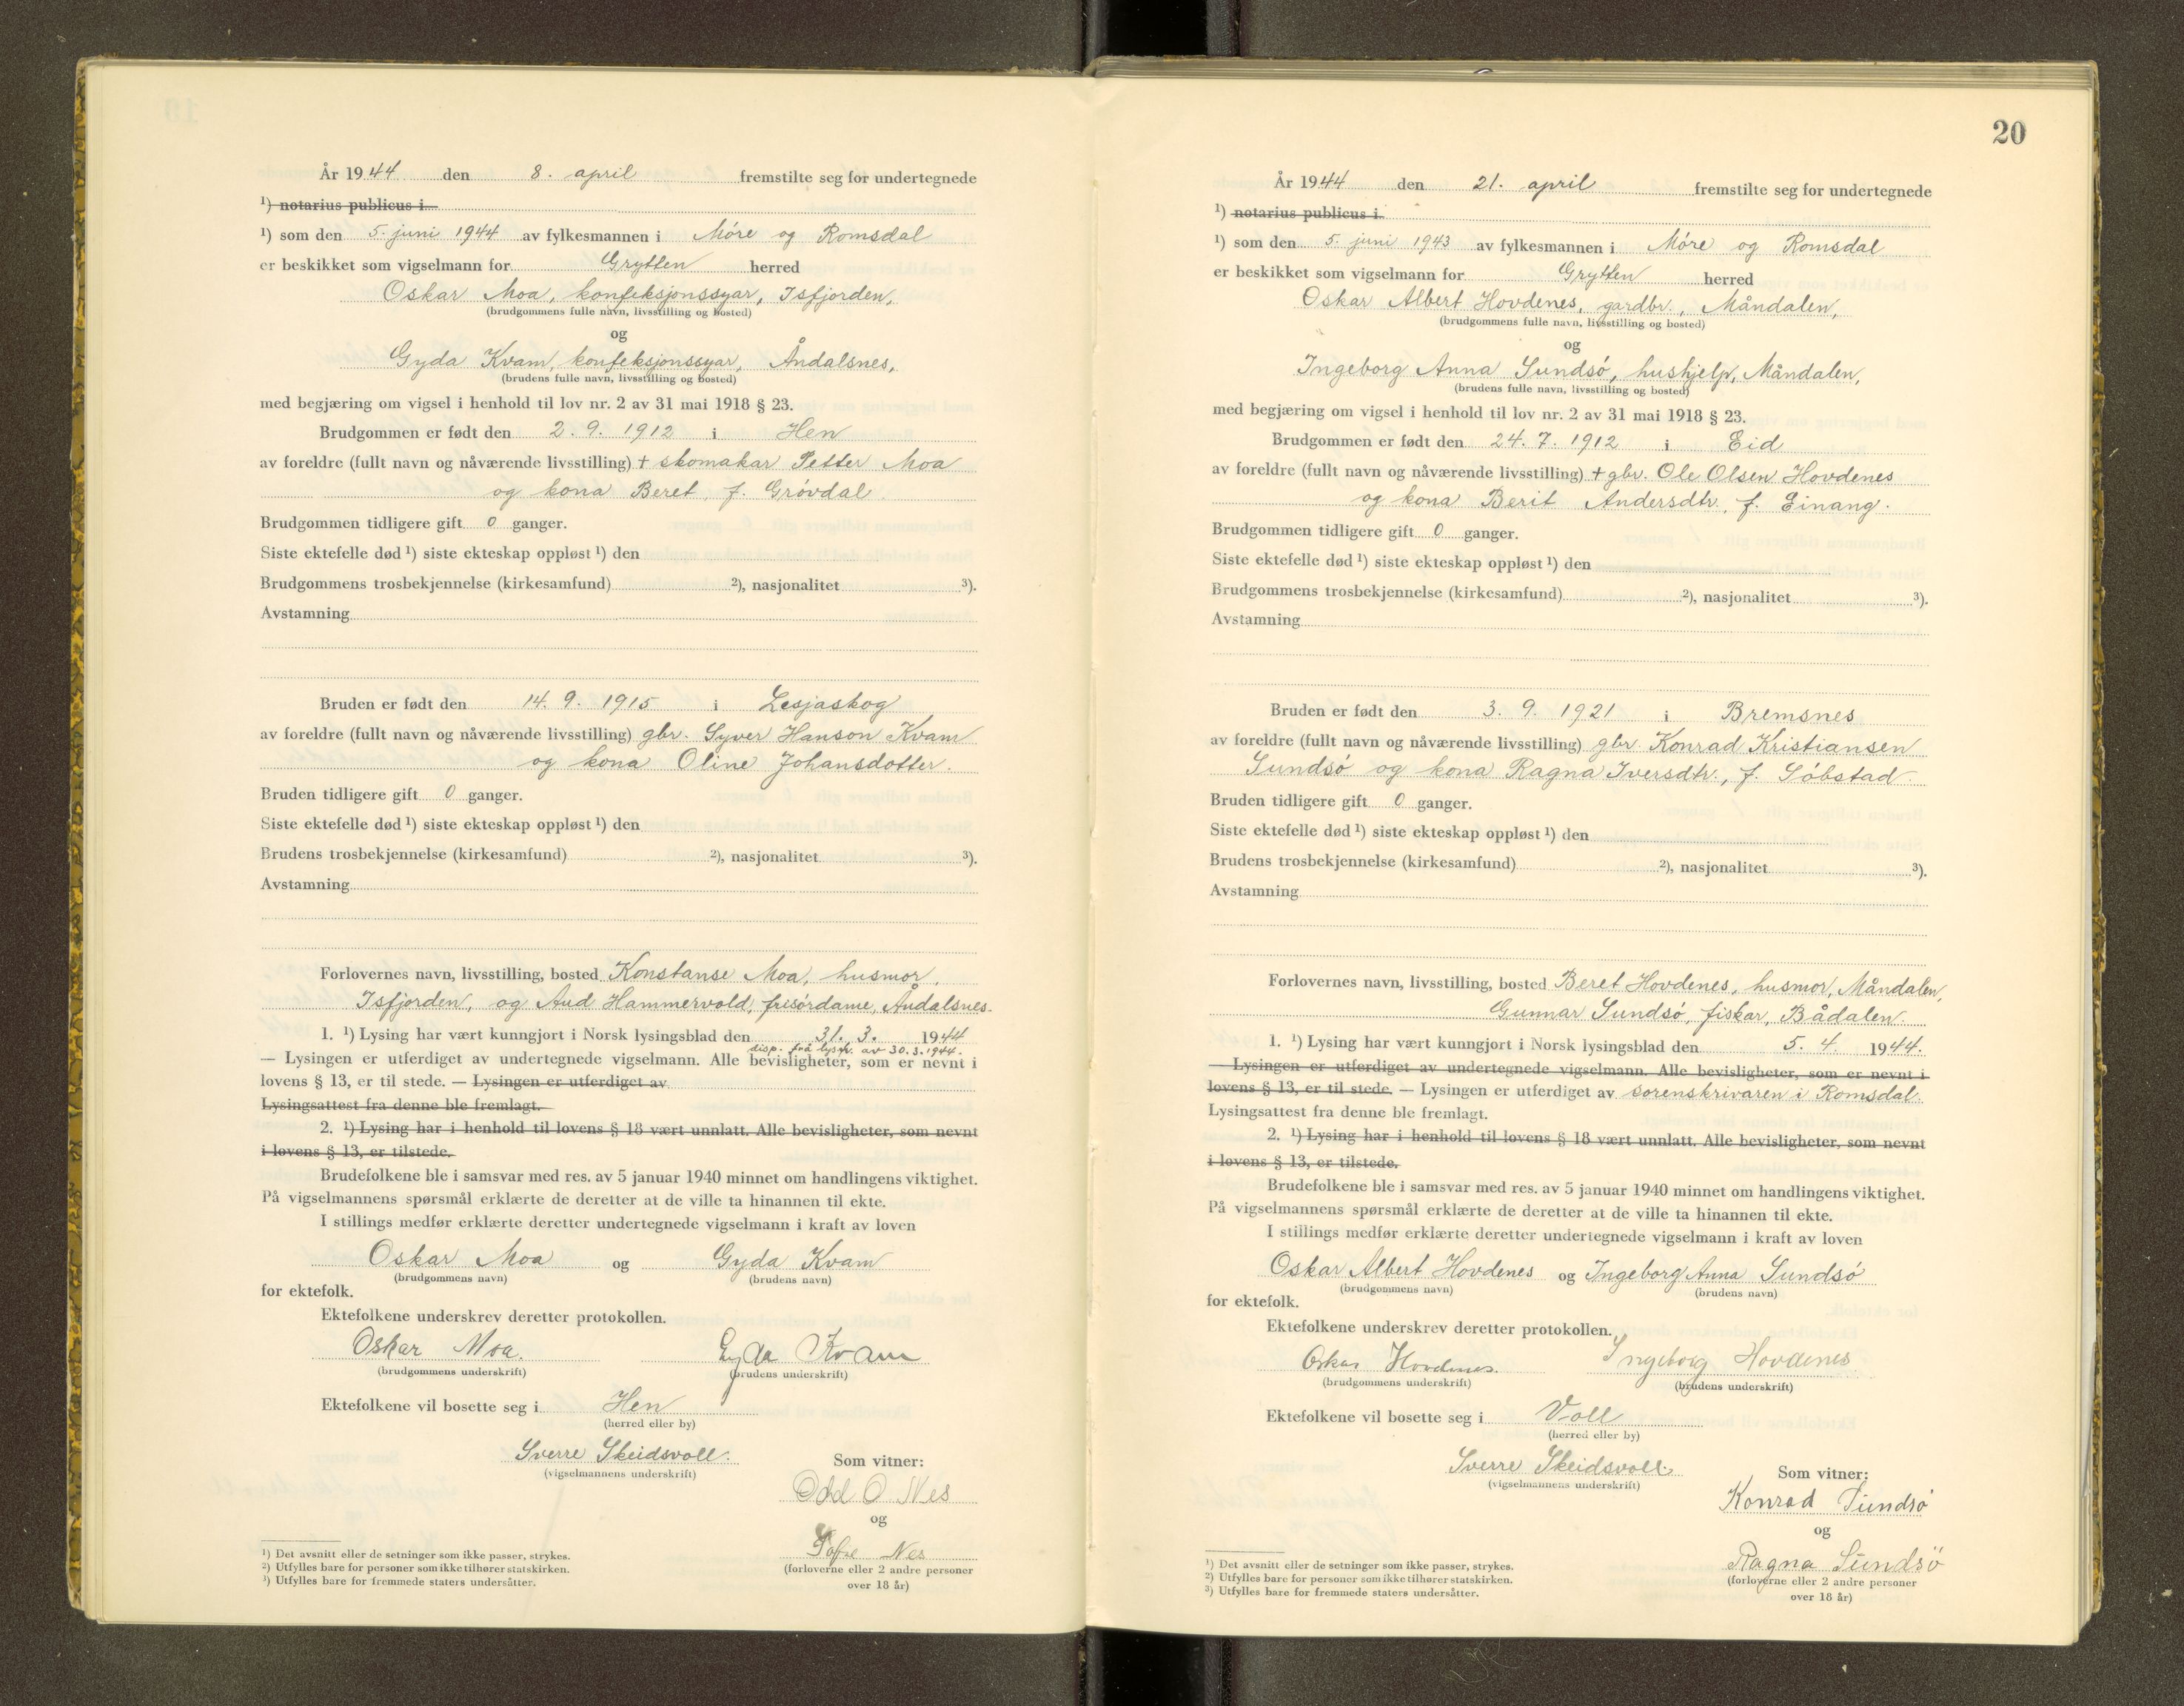 År 1944 den 8. april fremstilte seg for undertegnede
¹) notarius publicus i
¹) som den 5. juni 1944 av fylkesmannen i Móre og Romsdal
er beskikket som vigselmann for Grytten herred
Oskar Moa, konfeksjonssyar, Isfjorden,
(brudgommens fulle navn, livsstilling og bosted)
og
Gyda Kvam, konfeksjonssyar, Åndalsnes,
(brudens fulle navn, livsstilling og bosted)
med begjæring om vigsel i henhold til lov nr. 2 av 31 mai 1918 § 23.
Brudgommen er født den 2. 9. 1912 i Hen
av foreldre (fullt navn og nåværende livsstilling) + skomakar Petter Moa
og kona Beret, f. Gróvdal.
Brudgommen tidligere gift 0 ganger.
Siste ektefelle død ¹) siste ekteskap oppløst ¹) den
Brudgommens trosbekjennelse (kirkesamfund) ²), nasjonalitet ³).
Avstamning
Bruden er født den 14. 9. 1915 i Lesjaskog
av foreldre (fullt navn og nåværende livsstilling) gbr. Syver Hanson Kvam
og kona Oline Johansdotter.
Bruden tidligere gift 0 ganger.
Siste ektefelle død ¹) siste ekteskap oppløst ¹) den
Brudens trosbekjennelse (kirkesamfund) ²), nasjonalitet ³).
Avstamning
Forlovernes navn, livsstilling, bosted Konstanse Moa, husmor,
Isfjorden, og Aud Hammervold, frisórdame, Åndalsnes.
1. ¹) Lysing har vært kunngjort i Norsk lysingsblad den 31. 3. 1944
disp. frå lystr. av 30.3.1944.
— Lysingen er utferdiget av undertegnede vigselmann. Alle bevisligheter, som er nevnt i
lovens § 13, er til stede. — Lysingen er utferdiget av
Lysingsattest fra denne ble fremlagt.
2. ¹) Lysing har i henhold til lovens § 18 vært unnlatt. Alle bevisligheter, som nevnt
i lovens § 13, er tilstede.
Brudefolkene ble i samsvar med res. av 5 januar 1940 minnet om handlingens viktighet.
På vigselmannens spørsmål erklærte de deretter at de ville ta hinannen til ekte.
I stillings medfør erklærte deretter undertegnede vigselmann i kraft av loven
Oskar Moa og Gyda Kvam
(brudgommens navn) (brudens navn)
for ektefolk.
Ektefolkene underskrev deretter protokollen.
Oskar Moa. Gyda Kvam
(brudgommens underskrift) (brudens underskrift)
Ektefolkene vil bosette seg i Hen
(herred eller by)
Sverre Skeidsvoll.
(vigselmannens underskrift)
Som vitner:
Odd O Nes
og
Sofie Nes
(forloverne eller 2 andre personer
over 18 år)
¹) Det avsnitt eller de setninger som ikke passer, strykes.
²) Utfylles bare for personer som ikke tilhører statskirken.
³) Utfylles bare for fremmede staters undersåtter.
20
År 1944 den 21. april fremstilte seg for undertegnede
¹) notarius publicus i
¹) som den 5. juni 1943 av fylkesmannen i Móre og Romsdal
er beskikket som vigselmann for Grytten herred
Oskar Albert Hovdenes, gardbr., Måndalen,
(brudgommens fulle navn, livsstilling og bosted)
og
Ingeborg Anna Sundsó, hushjelp, Måndalen,
(brudens fulle navn, livsstilling og bosted)
med begjæring om vigsel i henhold til lov nr. 2 av 31 mai 1918 § 23.
Brudgommen er født den 24. 7. 1912 i Eid
av foreldre (fullt navn og nåværende livsstilling) + gbr. Ole Olsen Hovdenes
og kona Berit Andersdtr., f. Einang.
Brudgommen tidligere gift 0 ganger.
Siste ektefelle død ¹) siste ekteskap oppløst ¹) den
Brudgommens trosbekjennelse (kirkesamfund) ²), nasjonalitet ³).
Avstamning
Bruden er født den 3. 9. 1921 i Bremsnes
av foreldre (fullt navn og nåværende livsstilling) gbr. Konrad Kristiansen
Sundsó og kona Ragna Iversdtr., f. Sóbstad.
Bruden tidligere gift 0 ganger.
Siste ektefelle død ¹) siste ekteskap oppløst ¹) den
Brudens trosbekjennelse (kirkesamfund) ²), nasjonalitet ³).
Avstamning
Forlovernes navn, livsstilling, bosted Beret Hovdenes, husmor, Måndalen,
Gunnar Sundsó, fiskar, Bådalen.
1. ¹) Lysing har vært kunngjort i Norsk lysingsblad den 5. 4. 1944.
— Lysingen er utferdiget av undertegnede vigselmann. Alle bevisligheter, som er nevnt i
lovens § 13, er til stede. — Lysingen er utferdiget av sorenskrivaren i Romsdal.
Lysingsattest fra denne ble fremlagt.
2. ¹) Lysing har i henhold til lovens § 18 vært unnlatt. Alle bevisligheter, som nevnt
i lovens § 13, er tilstede.
Brudefolkene ble i samsvar med res. av 5 januar 1940 minnet om handlingens viktighet.
På vigselmannens spørsmål erklærte de deretter at de ville ta hinannen til ekte.
I stillings medfør erklærte deretter undertegnede vigselmann i kraft av loven
Oskar Albert Hovdenes og Ingeborg Anna Sundsó
(brudgommens navn) (brudens navn)
for ektefolk.
Ektefolkene underskrev deretter protokollen.
Oskar Hovdenes. Ingeborg Hovdenes
(brudgommens underskrift) (brudens underskrift)
Ektefolkene vil bosette seg i Voll
(herred eller by)
Sverre Skeidsvoll.
(vigselmannens underskrift)
Som vitner:
Konrad Sundsó
og
Ragna Sundsö
(forloverne eller 2 andre personer
over 18 år)
¹) Det avsnitt eller de setninger som ikke passer, strykes.
²) Utfylles bare for personer som ikke tilhører statskirken.
³) Utfylles bare for fremmede staters undersåtter.